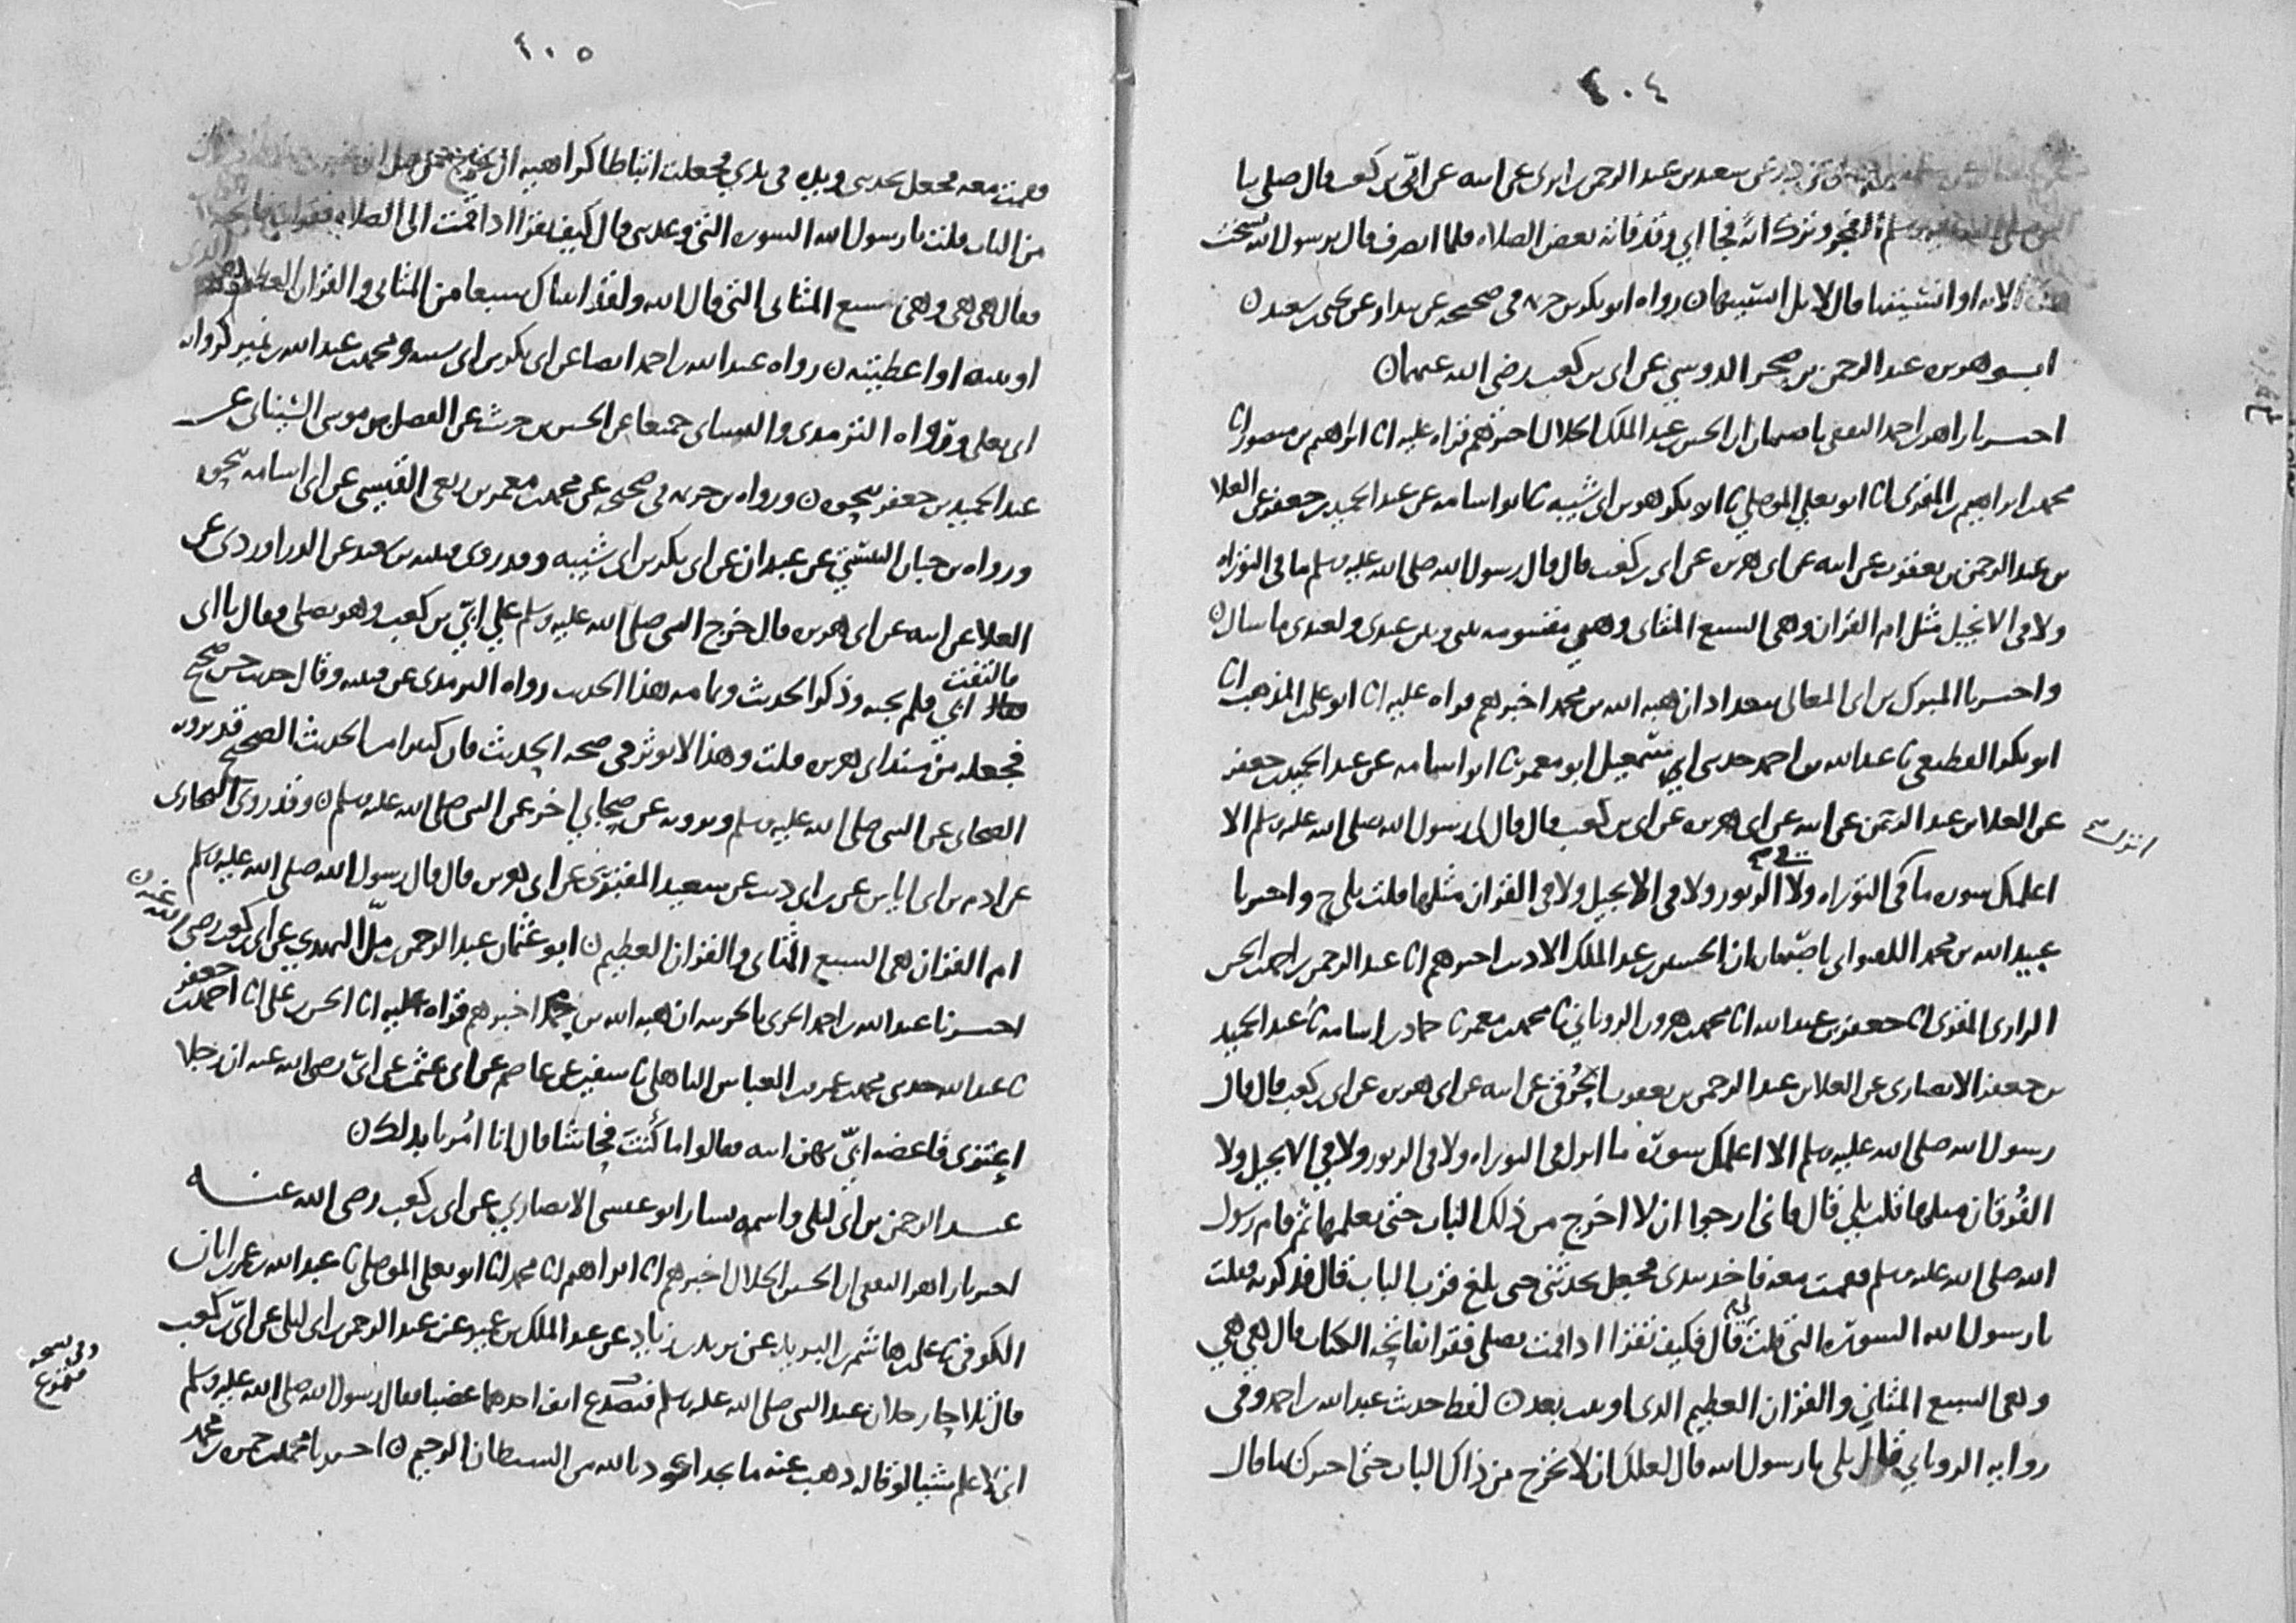 ٤٠٤
عن سعيد بن عبد الرحمن بن ابزى عن ابيه عن ابي بن كعب قال صلى بنا
الفجر وترك آية فجا ابي وقد فاته بعض الصلاه فلما انصرف قال يرسول الله نسخت
الايه او انسيتها قال لا بل انسيتها ن رواه ابو بكر بن خزيمه في صحيحه عن بندار عن يحيى بن سعيد ن
ابو هريره عبد الرحمن بن صخر الدوسي عن ابي بن كعب رضي الله عنهما ن
اخبرنا زاهر بن احمد الثقفي باصبهان ان الحسين بن عبد الملك الخلال اخبرهم قراه عليه انا ابراهيم بن منصور انا
محمد بن ابراهيم بن المقرئ انا ابو يعلى الموصلي نا ابو بكر هو بن ابي شيبه نا ابو اسامه عن عبد الحميد بن جعفر عن العلا
بن عبد الرحمن بن يعقوب عن ابيه عن ابي هريره عن ابي بن كعب قال قال رسول الله صلى الله عليه وسلم ما في التوراه
ولا في الانجيل مثل ام القران وهي السبع المثاني وهي مقسومه بيني وبين عبدي ولعبدي ما سال ن
واخبرنا المبرك بن ابي المعالي ببغداد ان هبه الله بن محمد اخبرهم قراه عليه انا ابو علي بن المذهب انا
ابو بكر القطيعي نا عبد الله بن احمد حدثني اسمعيل ابو معمر نا ابو اسامه عن عبد الحميد بن جعفر
عن العلا بن عبد الرحمن عن ابيه عن ابي هريره عن ابي بن كعب قال قال لي رسول الله صلى الله عليه وسلم الا
انزل
اعلمك سوره ما في التوراه ولا في الزبور ولا في الانجيل ولا في القران مثلها قلت بلى ح واخبرنا
عبيد الله بن محمد اللفتواني باصبهان ان الحسين بن عبد الملك الاديب اخبرهم انا عبد الرحمن بن احمد بن الحسن
الرازي المقرئ انا جعفر بن عبد الله انا محمد بن هرون الروياني نا محمد بن معمر نا حماد بن اسامه نا عبد الحميد
بن جعفر الانصاري عن العلا بن عبد الرحمن بن يعقوب الحرقي عن ابيه عن ابي هريره عن ابي بن كعب قال قال
رسول الله صلى الله عليه وسلم الا اعلمك سورة ما انزل في التوراه ولا في الزبور ولا في الانجيل ولا
الفرقان مثلها قلت بلى قال فاني ارجوا ان لا اخرج من ذلك الباب حتى تعلمها ثم قام رسول
الله صلى الله عليه وسلم فقمت معه فاخذ بيدي فجعل يحدثني حتى بلغ قرب الباب قال فذكرته فقلت
يا رسول الله السورة التي قلت لي قال فكيف تقرا اذا قمت تصلي فقرا بفاتحة الكتاب قال هي هي
وهي السبع المثاني والقران العظيم الذي اوتيت بعد ن لفظ حديث عبد الله بن احمد وفي
روايه الروياني قال بلى يا رسول الله قال لعلك ان لا تخرج من ذاك الباب حتى اخبرك بها قال
٤٠٥
فقمت معه فجعل يحدثني ويده في يدي فجعلت اتباطا كراهيه ان يخرج
من الباب قلت يا رسول الله السوره التي وعدتني قال كيف تقرا اذا قمت الى الصلاه
فقال هي هي وهي سبع المثاني التي قال الله ولقد اتيناك سبعا من المثاني والقران العظيم
اوتيته او اعطيته ن رواه عبد الله بن احمد ايضا عن ابي بكر بن ابي شيبه ومحمد بن عبد الله بن نمير كروايه
ابي يعلى ورواه الترمذي والنسائي جميعا عن الحسين بن حريث عن الفضل بن موسى السيناني عن
عبد الحميد بن جعفر بنحوه ن ورواه بن خزيمه في صحيحه عن محمد بن معمر بن ربعي القيسي عن ابي اسامه بنحوه
ورواه بن حبان البستي عن عبدان عن ابي بكر بن ابي شيبه وقد روى قتيبه بن سعيد عن الدراوردي عن
العلا عن ابيه عن ابي هريره قال خرج النبي صلى الله عليه وسلم على ابي بن كعب وهو يصلي فقال يا ابي
فالتفت ابي فلم يجبه وذكر الحديث وتمامه هذا الحديث رواه الترمذي عن قتيبه وقال حديث حسن صحيح
فجعله من مسند ابي هريره قلت وهذا لا يوثر في صحه الحديث فان كثيرا من الحديث الصحيح قد يرويه
الصحابي عن النبي صلى الله عليه وسلم ويرويه عن صحابي اخر عن النبي صلى الله عليه وسلم ن وقد روى البخاري
عن ادم بن ابي اياس عن بن ابي ذيب عن سعيد المقبري عن ابي هريره قال قال رسول الله صلى الله عليه وسلم
ام القران هي السبع المثاني والقران العظيم ن ابو عثمان عبد الرحمن بن مل النهدي عن ابي بن كعب رضي الله عنه ن
اخبرنا عبد الله بن احمد الحربي بالحربيه ان هبه الله بن محمد اخبرهم قراه عليه انا الحسن بن علي انا احمد بن جعفر
نا عبد الله حدثني محمد بن عمرو بن العباس الباهلي نا سفين عن عاصم عن ابي عثمن عن ابي رضي الله عنه ان رجلا
اعتزى فاعضه ابي بهن ابيه فقالوا ما كنت فحاشا قال انا امرنا بذلك ن
عبد الرحمن بن ابي ليلى واسمه يسار ابو عيسى الانصاري عن ابي بن كعب رضي الله عنه
اخبرنا زاهر الثقفي ان الحسين الخلال اخبرهم انا ابراهيم انا محمد انا ابو يعلى الموصلي نا عبد الله بن عمر بن ابان
الكوفي نا علي بن هاشم بن البريد عن يزيد بن زياد عن عبد الملك بن عمير عن عبد الرحمن بن ابي ليلى عن ابي بن كعب
قال تلاحا رجلان عند النبي صلى الله عليه وسلم فتصدع انف احدهما غضبا فقال رسول الله صلى الله عليه وسلم
وفي نسخه فتمزع
اني لاعلم شيا لو قاله ذهب عنه ما يجد اعوذ بالله من الشيطان الرجيم ن اخبرنا محمد بن حمزه بن محمد